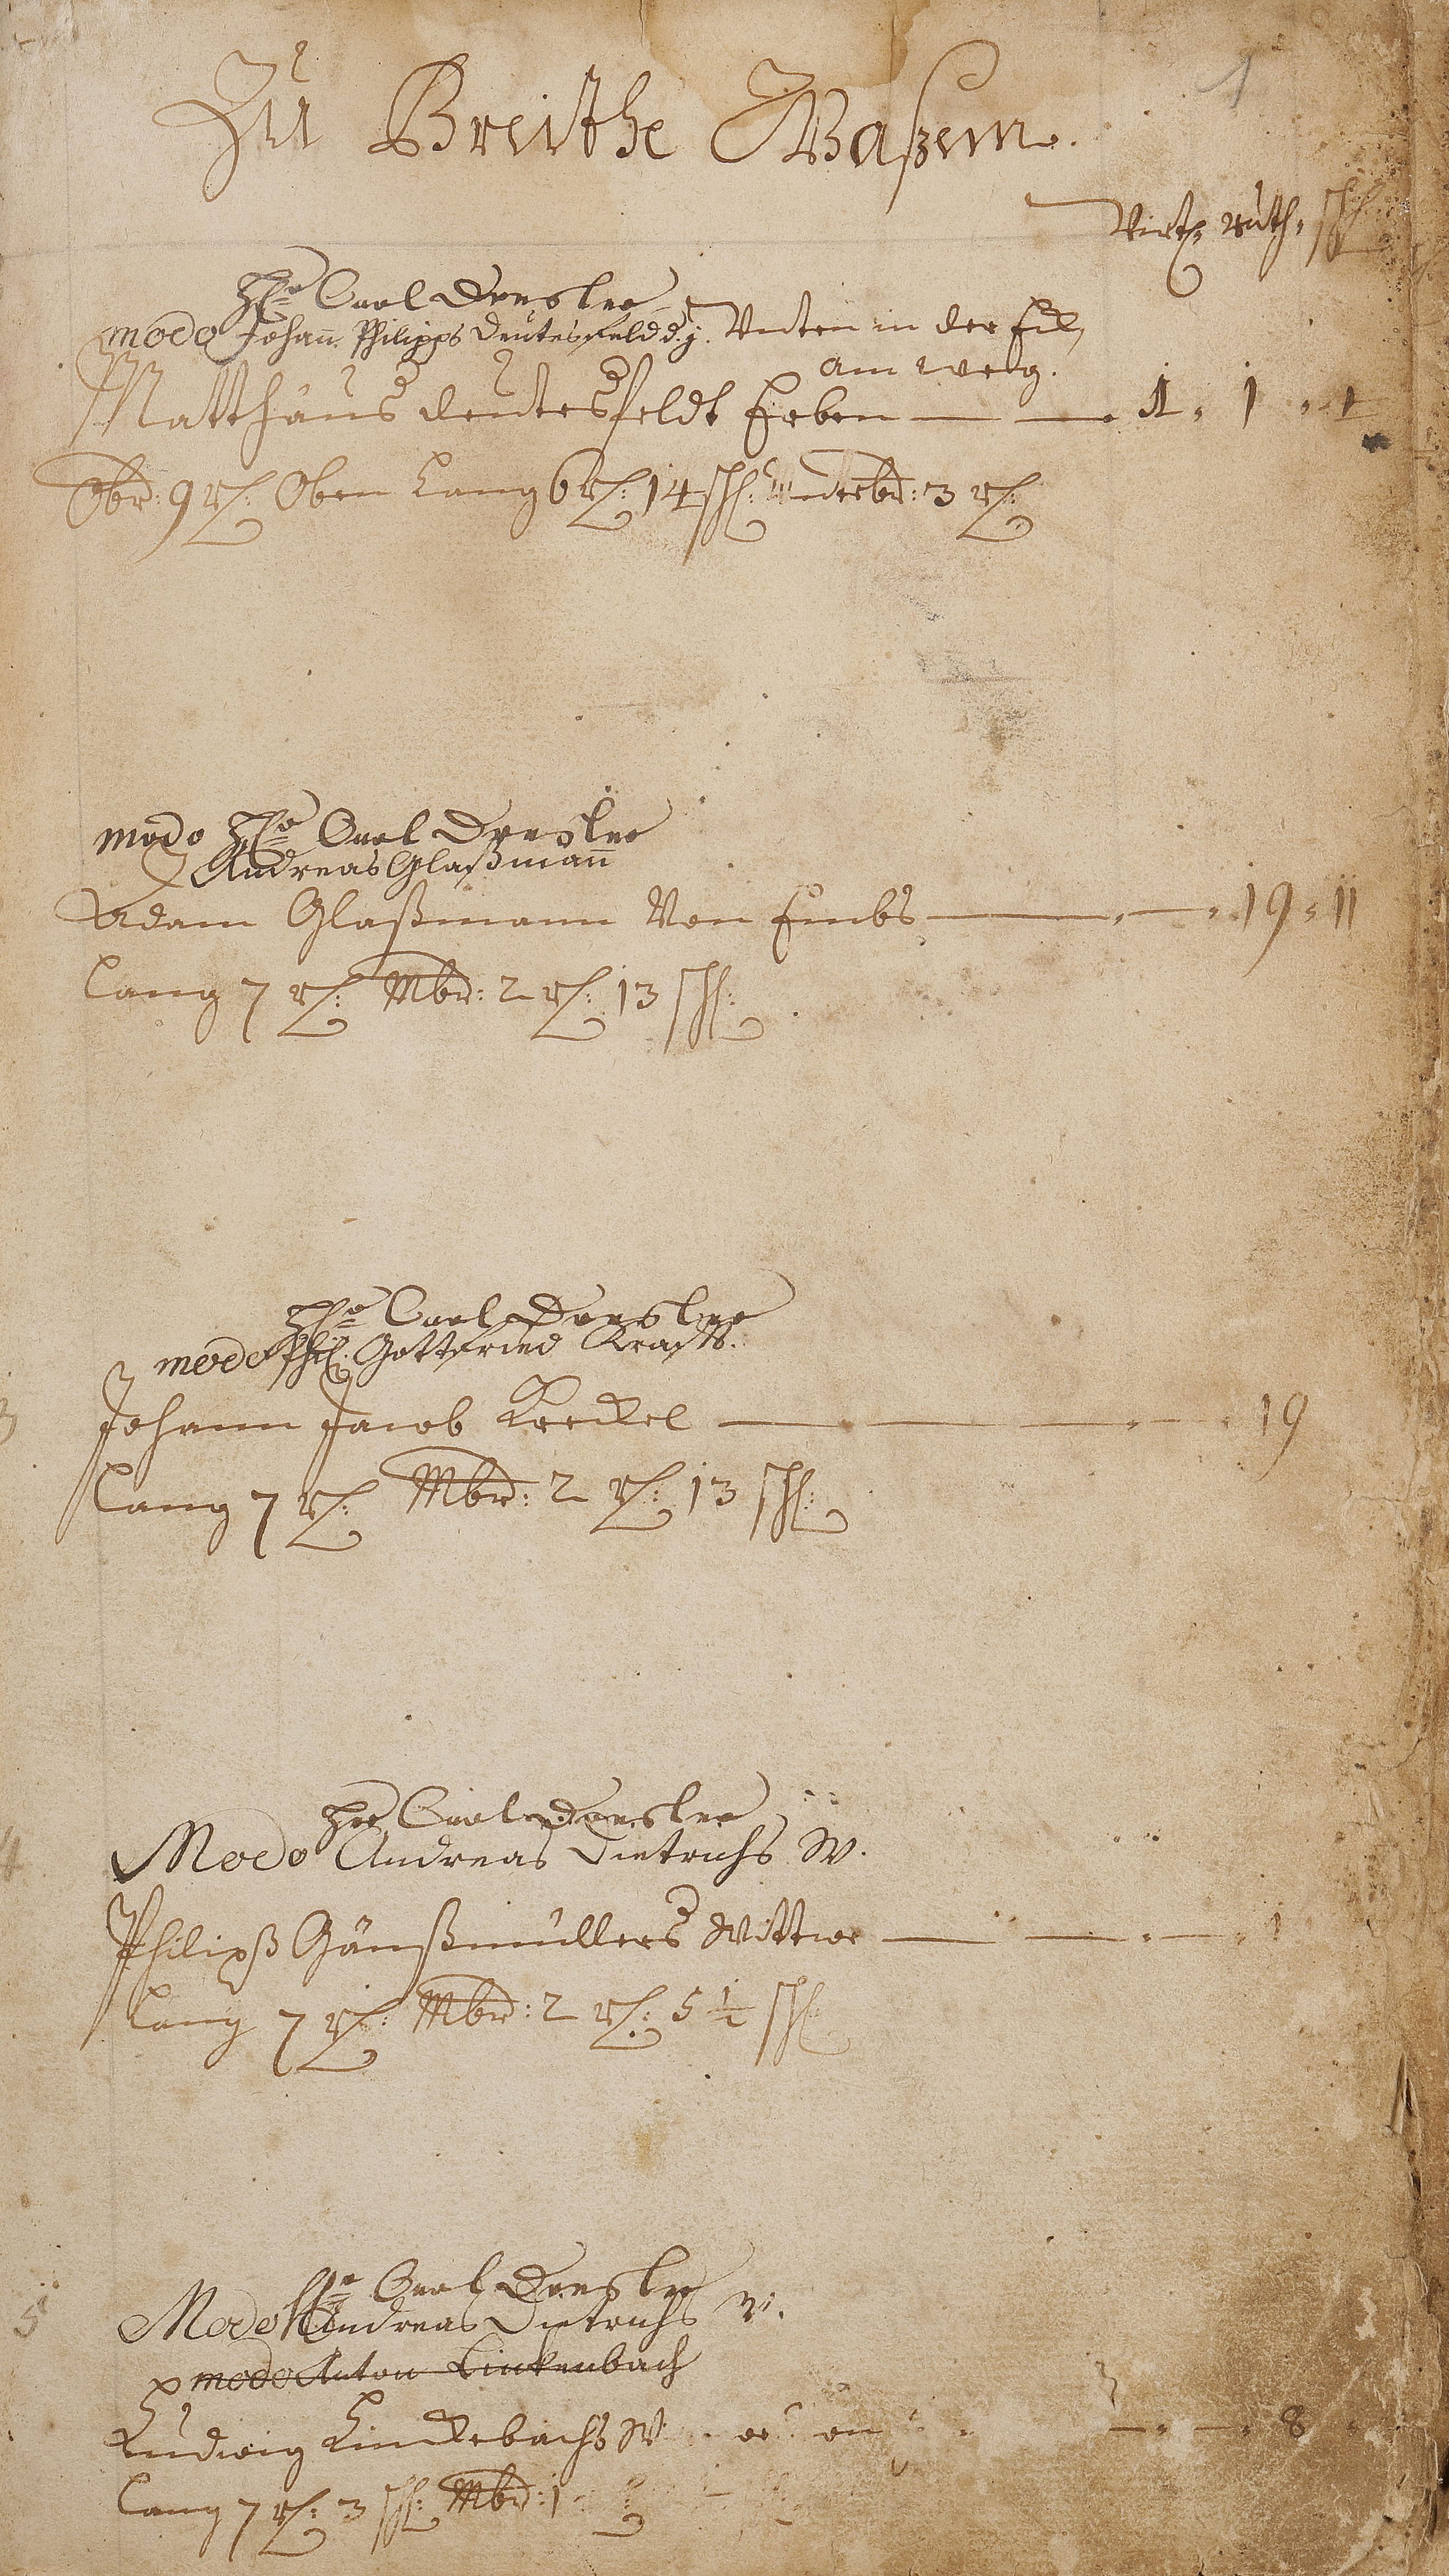 1
Zu Breithe Waßem.
Virt. Ruth. sch.
Hr. Carl Dresler
modo Johañ Philipps Deutesfeld d. j. Unten in der Eil,
am weeg.
Matthäus deutesfeldt Erben — — 1. 1. 1
Obr: 9 r: Oben Lang 6 r: 14 sch: Underbr: 3 r:
modo Hr. Carl Dresler
Andreas Glaßmañ
Adam Glaßmann Von Embs — . — . 19 . 11
Lang 7 r: Mbr: 2 r: 13 sch:
Hr. Carl Dresler
modo Phil. Gottfried Krafft.
Johann Jacob Keckel — — — . — . 19
Lang 7 r: Mbr: 2 r: 13 sch:
Hr Carl Dresler
Modo Andreas Dietrichs W.
4
Philipß Gämßmüllers Wittwe — — . — . 1
Lang 7 r: Mbr: 2 r: 5 1/2 sch:
Hr. Carl Dresler
5
Modo Andreas Dietrichs W.
modo Anton Linkenbach
Ludwig Linckebachs W — . — . 8 .
Lang 7 r: 3 sch: Mbr: 1